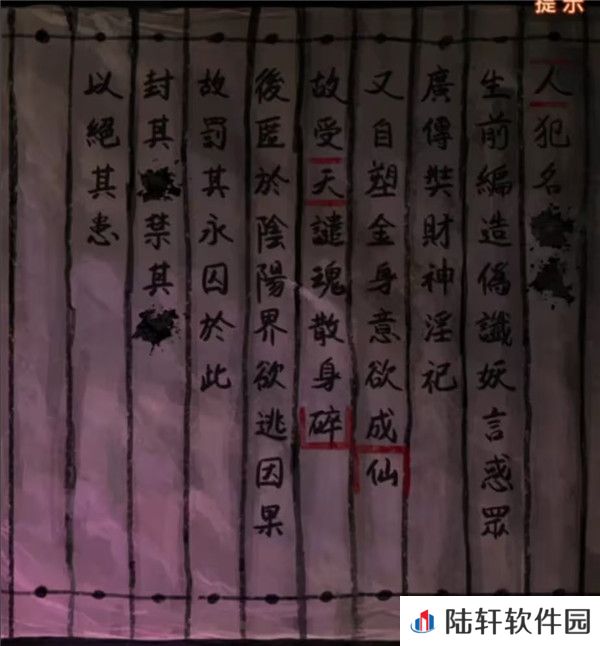 提示
人犯名
生前編造僞讖妖言惑眾
廣傳奘財神淫祀
又自塑金身意欲成仙
故受天譴魂散身碎
後匿於陰陽界欲逃因果
故罰其永囚於此
封其禁其
以絕其患
陆轩软件园